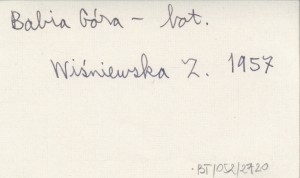 Babia Góra – bot.
Wiśniewska Z. 1957
BT/052/2720